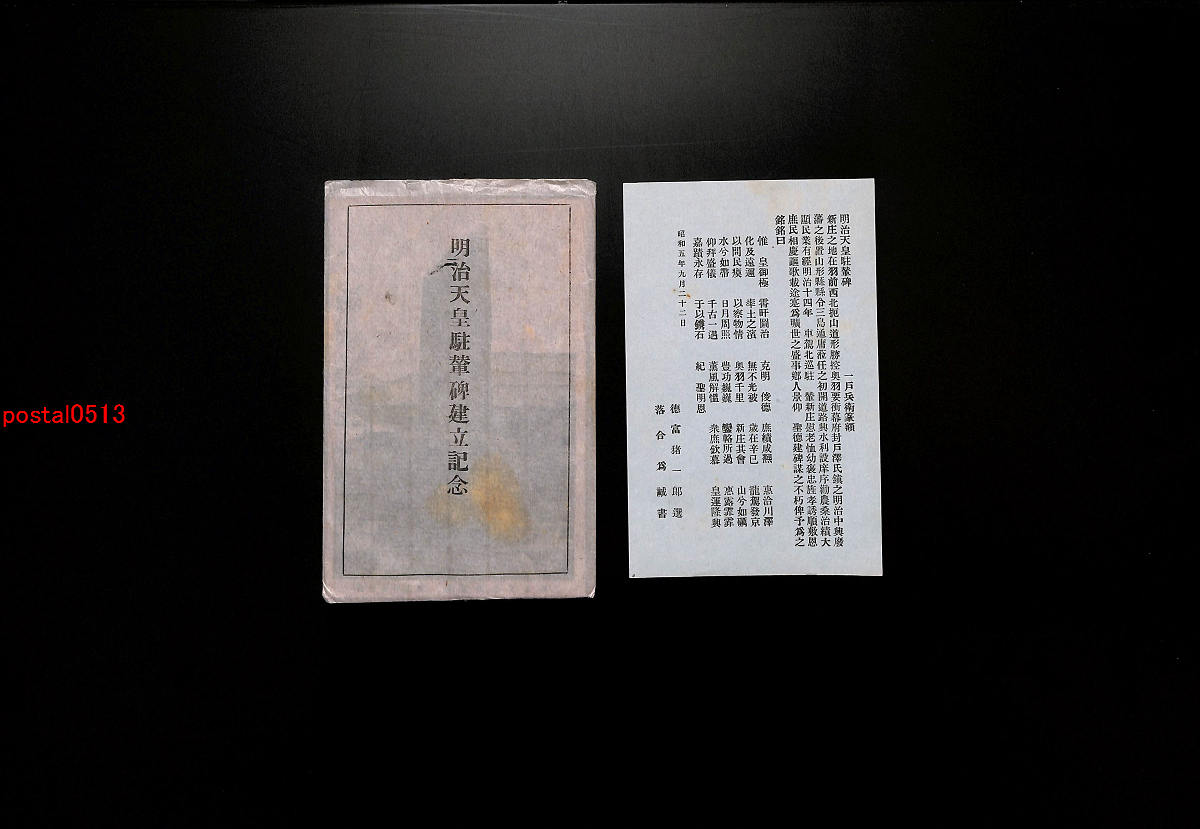 postal0513
明治天皇駐輦碑建立記念
明治天皇駐輦碑
一戶兵衛篆額
新庄之地在羽前西北扼山道形勝控奥羽要衝幕府封戶澤氏鎭之明治中興廢
藩之後置山形縣縣令三島通庸蒞任之初開道路興水利設庠序勸農桑治績大
顯民業有經明治十四年 車駕北巡駐 輦新庄慰老恤幼褒忠旌孝誘順敷恩
庶民相慶謳歌載途寔爲曠世之盛事鄕人景仰 聖德建碑謀之不朽俾予爲之
銘銘曰
惟 皇御極 宵旰圖治 克明 俊德 庶績咸凞 惠洽川澤
化及遠邇 率土之濱 無不光被 歲在辛巳 龍駕發京
以問民瘼 以察物情 奥羽千里 新庄其會 山兮如礪
水兮如帶 日月周照 豊功巍巍 鑾輅所過 恵露霏霏
仰拜盛儀 千古一遇 薰風解慍 衆庶欽慕 皇運隆興
嘉蹟永存 于以鐫石 紀 聖明恩
昭和五年九月二十二日
德富猪一郎選
落合爲誠書